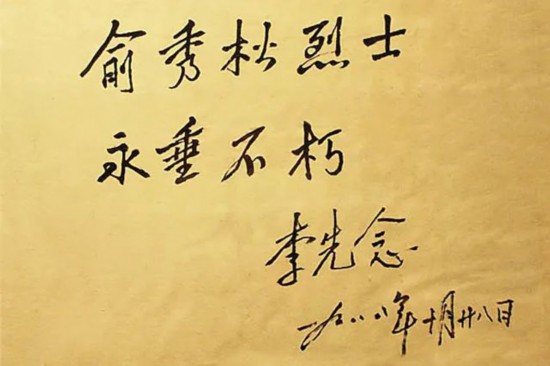 俞秀松烈士
永垂不朽
李先念
一九八八年十月廿八日